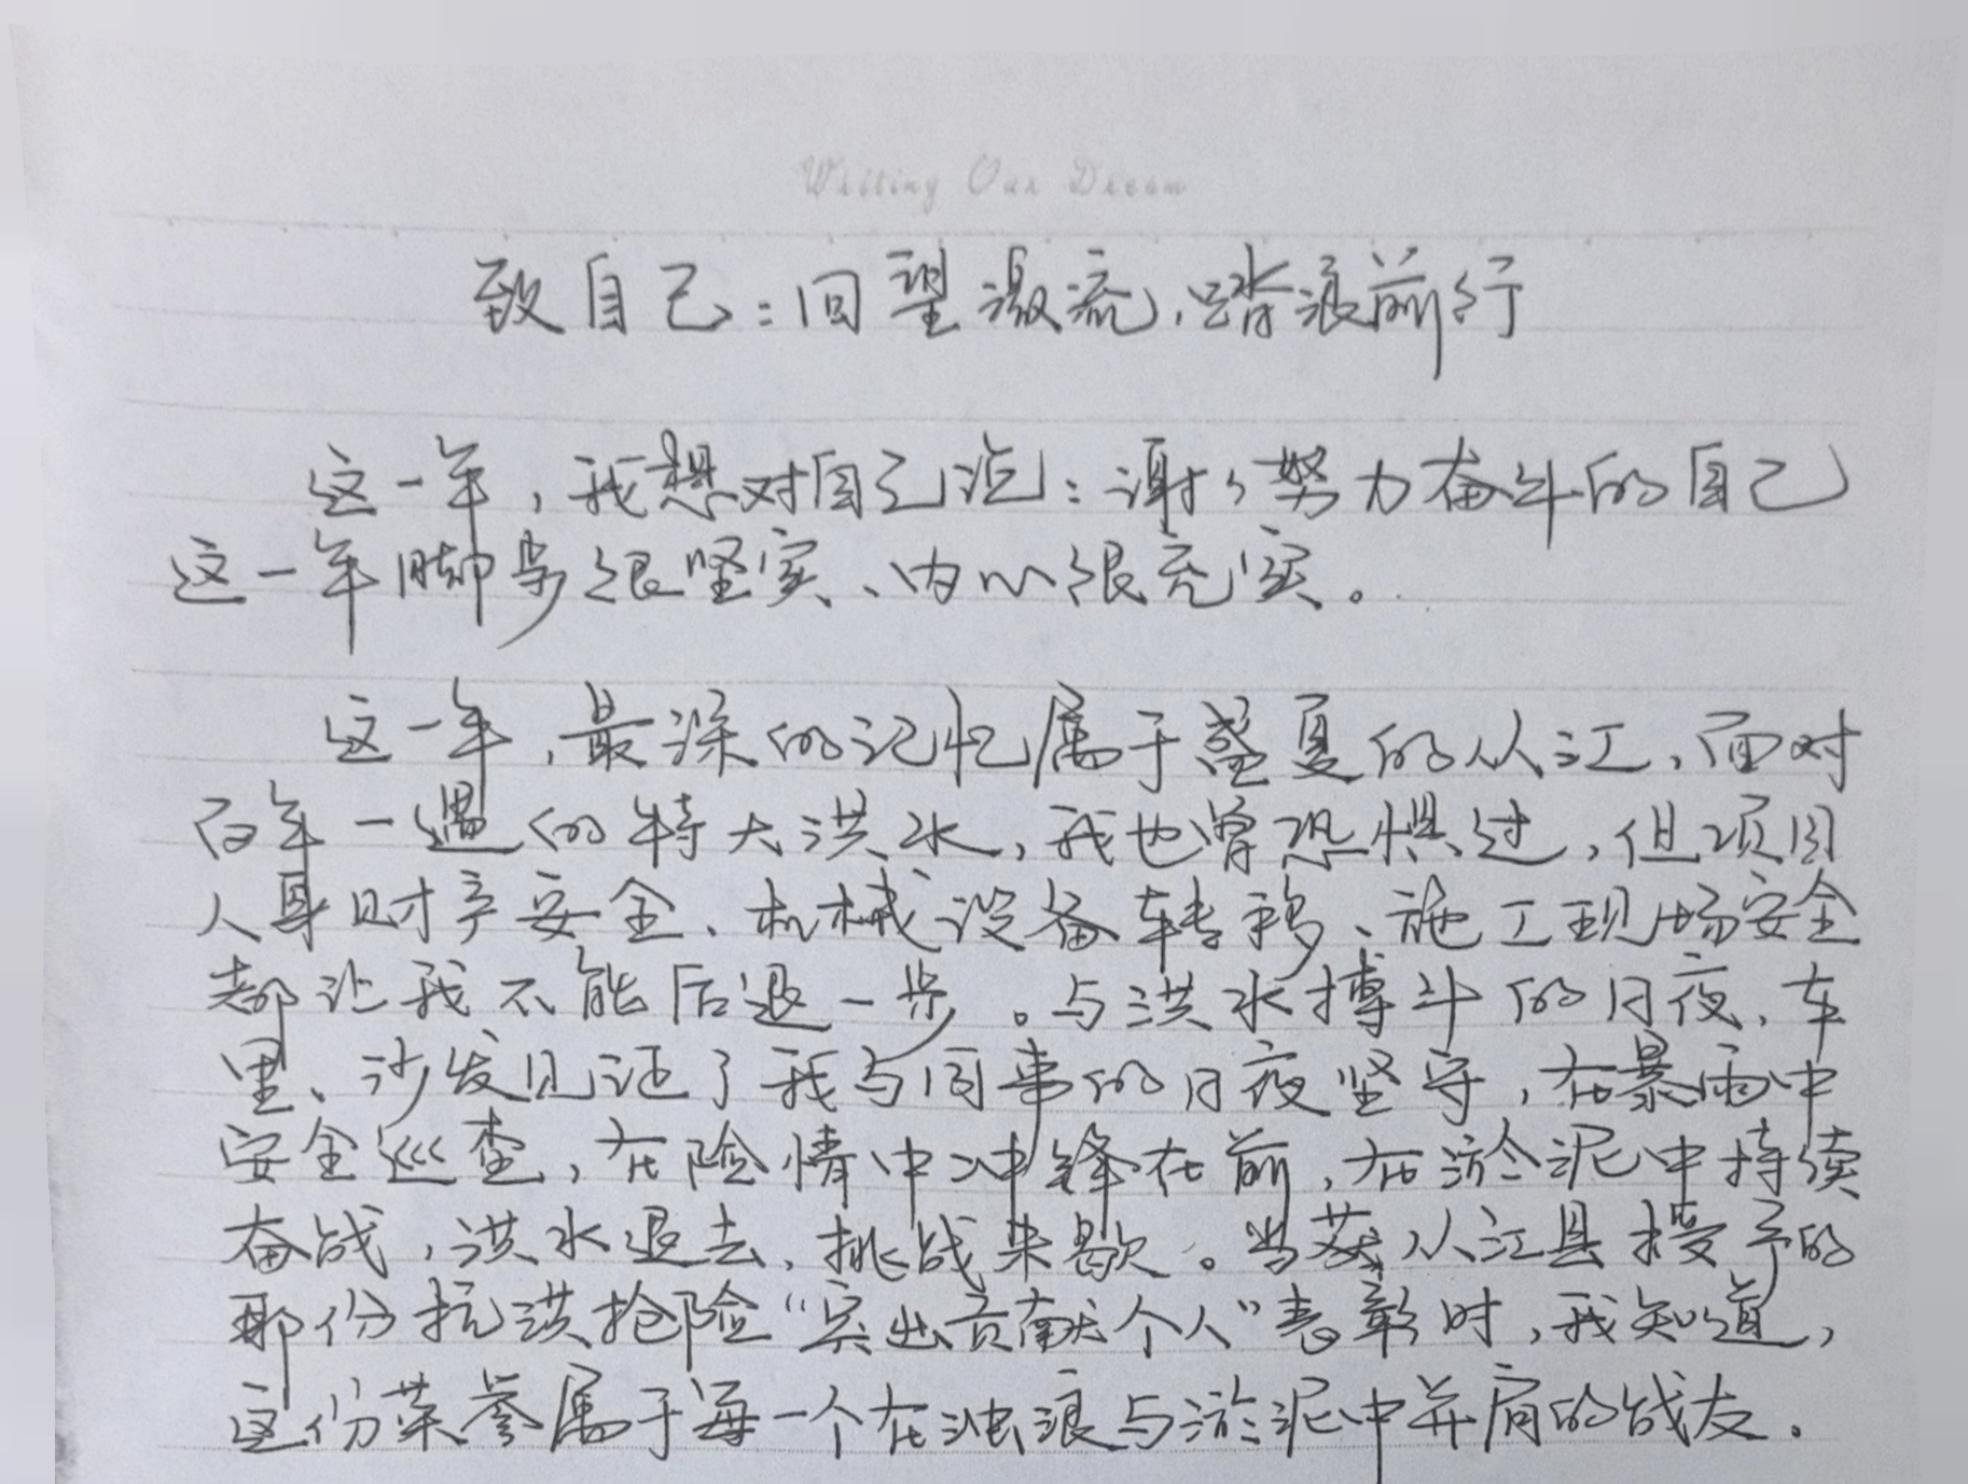 Writing Our Dream
致自己：回望激流，踏浪前行
这一年，我想对自己说：谢谢努力奋斗的自己
这一年脚步很坚实、内心很充实。
这一年，最深的记忆属于盛夏的从江，面对
百年一遇的特大洪水，我也曾恐惧过，但项目
人身财产安全、机械设备转移、施工现场安全
都让我不能后退一步。与洪水搏斗的日夜，车
里、沙发见证了我与同事的日夜坚守，在暴雨中
安全巡查，在险情中冲锋在前，在淤泥中持续
奋战，洪水退去，挑战未歇。当获从江县授予的
那份抗洪抢险“突出贡献个人”表彰时，我知道，
这份荣誉属于每一个在浊浪与淤泥中并肩的战友。